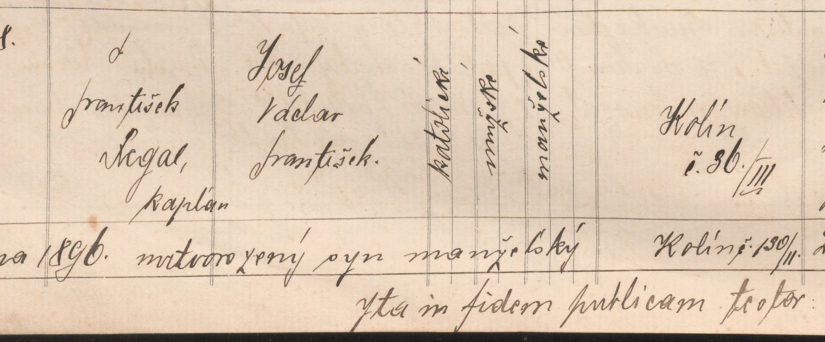 8.
František
Segal,
kaplán
Josef
Václav
František.
katolické
mužské
manželské
Kolín
č. 36./III
na 1896. mrtvorozený syn manželský
Kolín č. 130/II.
Ita in fidem publicam testor: